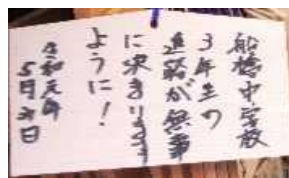 船橋中学校
3年生の
進路が無事
に決まります
ように！
令和元年
5月31日